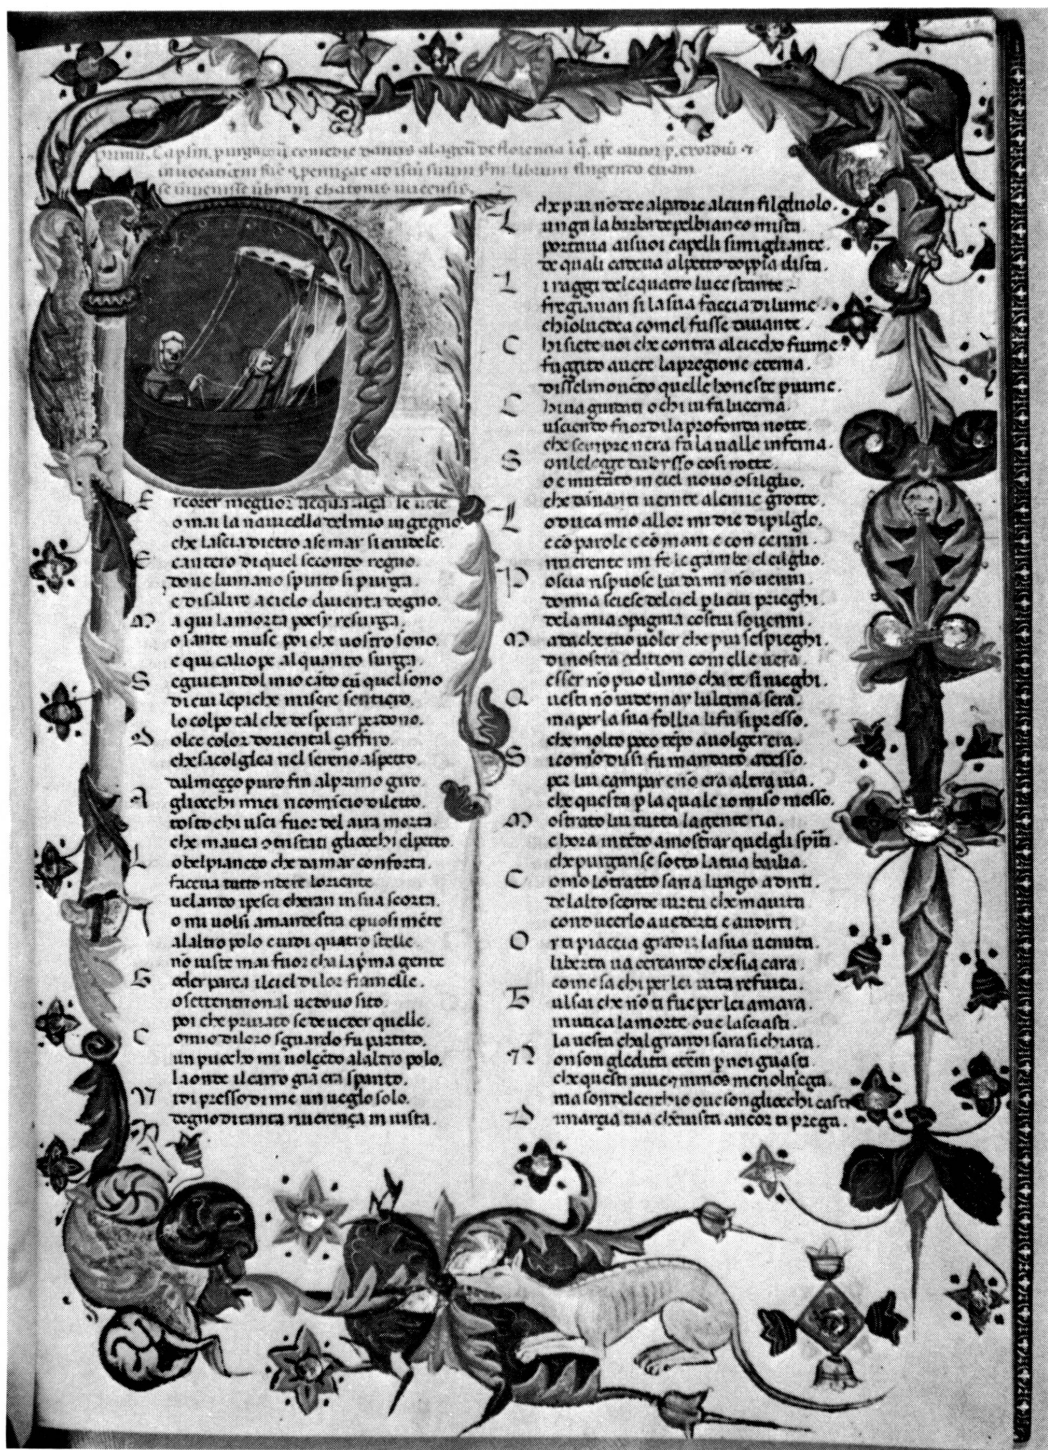 E rcorer meglior acqua alça le uele
o mai la nauicella del mio ingegno
che lascia dietro a se mar si crudele.
E cantero di quel secondo regno.
doue lumano spirito si purga.
e di salire a cielo diuenta degno.
M a qui la morta poesy resurga.
o sante muse poi che uostro sono.
e qui caliope alquanto surga.
S eguitando l mio cãto cũ quel sono
di cui le piche misere sentiero.
lo colpo tal che desperar perdono.
D olce color doriental çaffiro.
che sacoglea nel sereno aspetto.
dal meçço puro fin al primo giro.
A gliocchi miei ricomĩcio diletto.
tosto chi usci fuor del aura morta.
che mauea cõtristati gliocchi elpetto.
L o bel pianeto che damar conforta.
faceua tutto ridere loriente
uelando i pesci cheran in sua scorta.
I o mi uolsi a man destra e puosi mẽte
a laltro polo e uidi quatro stelle
nõ uiste mai fuor cha la pͥma gente
G oder parea il ciel di lor fiamelle.
o settentrional uedouo sito.
poi che priuato se de ueder quelle.
C omio di loro sguardo fu partito.
un pucho mi uolgẽdo al altro polo.
la onde il carro già era sparito.
V idi presso di me un ueglo solo.
degno di tanta riuerença in uista.
che piu nõ dee al padre alcun filgliuolo.
L unga la barba e de pel bianco mista
portaua a i suoi capelli simigliante.
de quali cadeua al petto doppia lista.
L i raggi de le quatro luce sante.
fregiauan si la sua faccia di lume.
chio lucdea comel fusse dauante.
C hi siete uoi che contra al ciecho fiume
fuggito auete la pregione eterna.
dissel mouẽdo quelle honeste piume.
C hi ua guidati o chi ui fu lucerna.
usciendo fuor di la profonda notte.
che sempre nera fa la ualle inferna.
S on le legge dabisso cosi rotte.
o e mutato in ciel nouo cõsilglio.
che dãnati uenite a le mie grotte.
L o duca mio allor mi die di pilglo.
e cõ parole e cõ mani e con cenni.
riuerente mi fe le gambe el cilglio.
P oscia rispuose lui da mi nõ uenni.
donna sciese del ciel p li cui prieghi.
de la mia cõpagnia costui souenni.
M a da che tuo uoler che piu se spieghi.
di nostra cõdition com elle uera.
esser nõ puo il mio cha te si nieghi.
Q uesti nõ uide mai lultima sera.
ma per la sua follia li fu si presso.
che molto poco tẽpo a uolger era.
S i comio dissi fu mandato adesso.
per lui campar e nõ era altra uia.
che questa p la quale io miso messo.
M ostrato lui tutta la gente ria.
e hora intẽdo a mostrar quelgli spiti.
che purganse sotto la tua bailia.
C omo lo tratto saria lungo a dirti.
de lalto scende uirtu che maiuta
conducerlo a uederti e audirti.
O r ti piaccia gradir la sua uenuta.
liberta ua cercando che si a cara.
come sa chi per lei uita refiuta.
T u l sai che nõ ti fue per lei amara.
in utica la morte oue lasciasti.
la uesta chal gran di sara si chiara.
N on son gleditti etẽni p noi guasti
che questi uiue e minos me nol lega.
ma son del cerchio oue son gliocchi casti
D i marzia tua chẽ uista ancor ti prega.